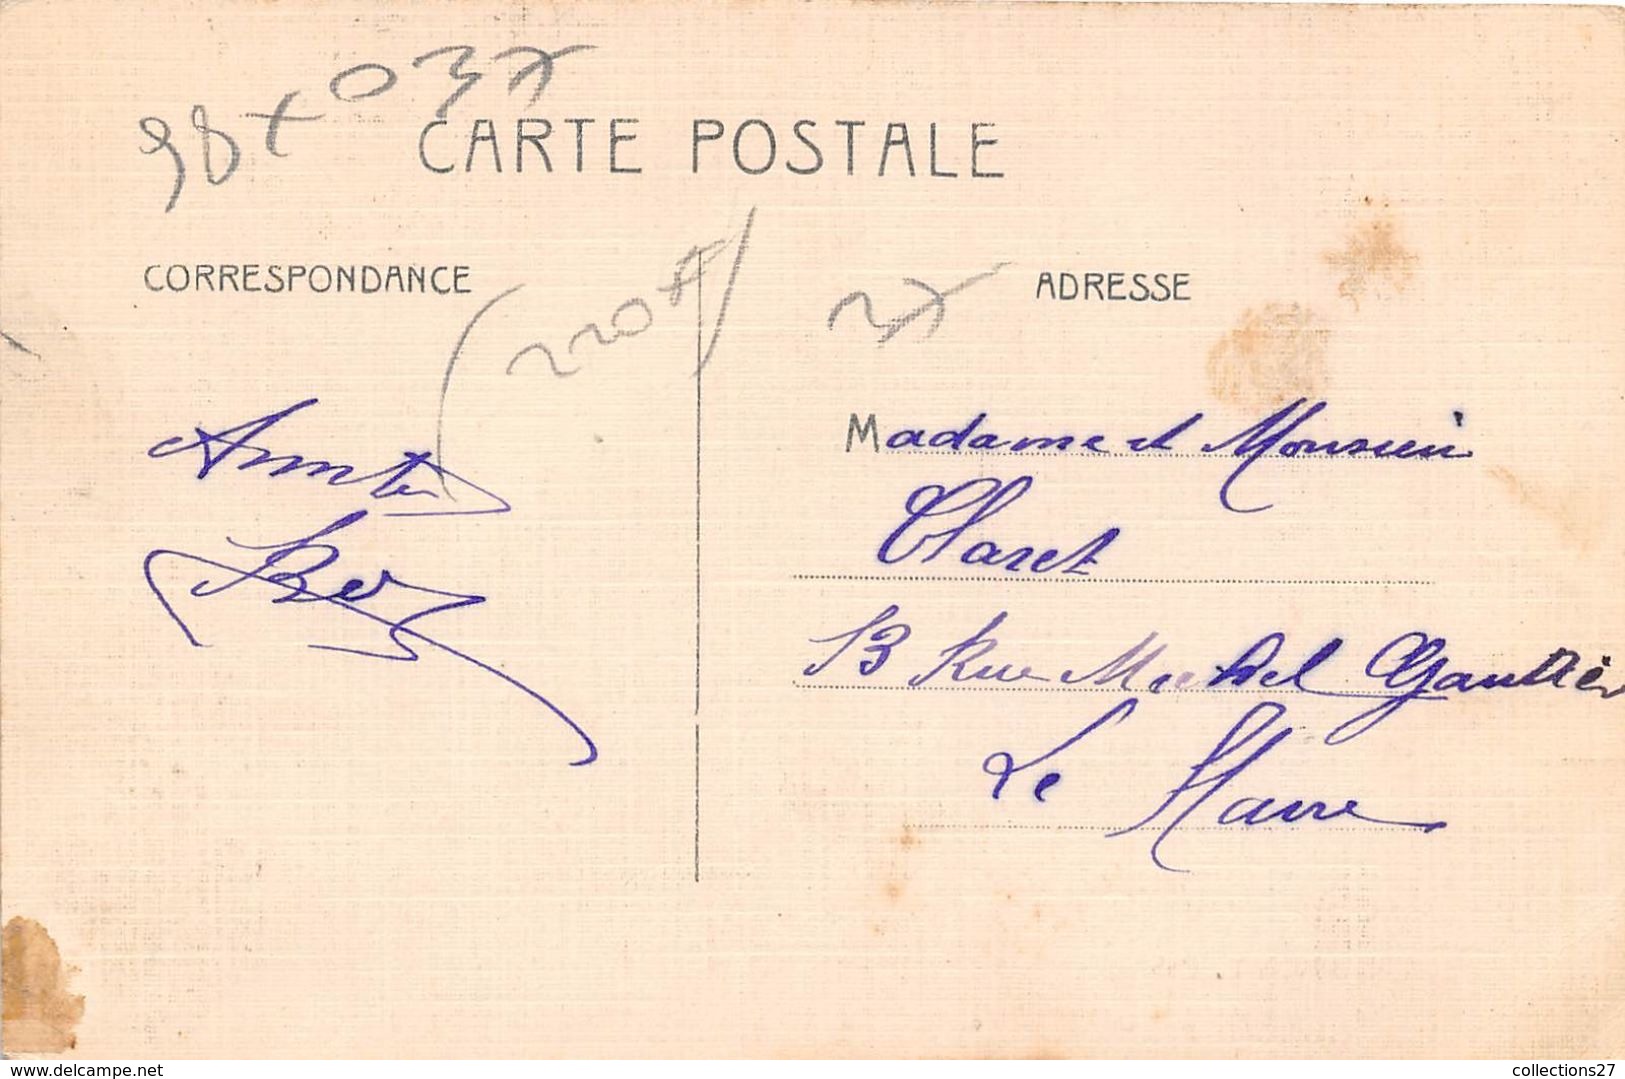 98 x 037
CARTE POSTALE
CORRESPONDANCE
ADRESSE
37
Madame et Monsieur
Claret
13 Rue Michel Gautier
Le Havre
www.delcampe.net
collections27